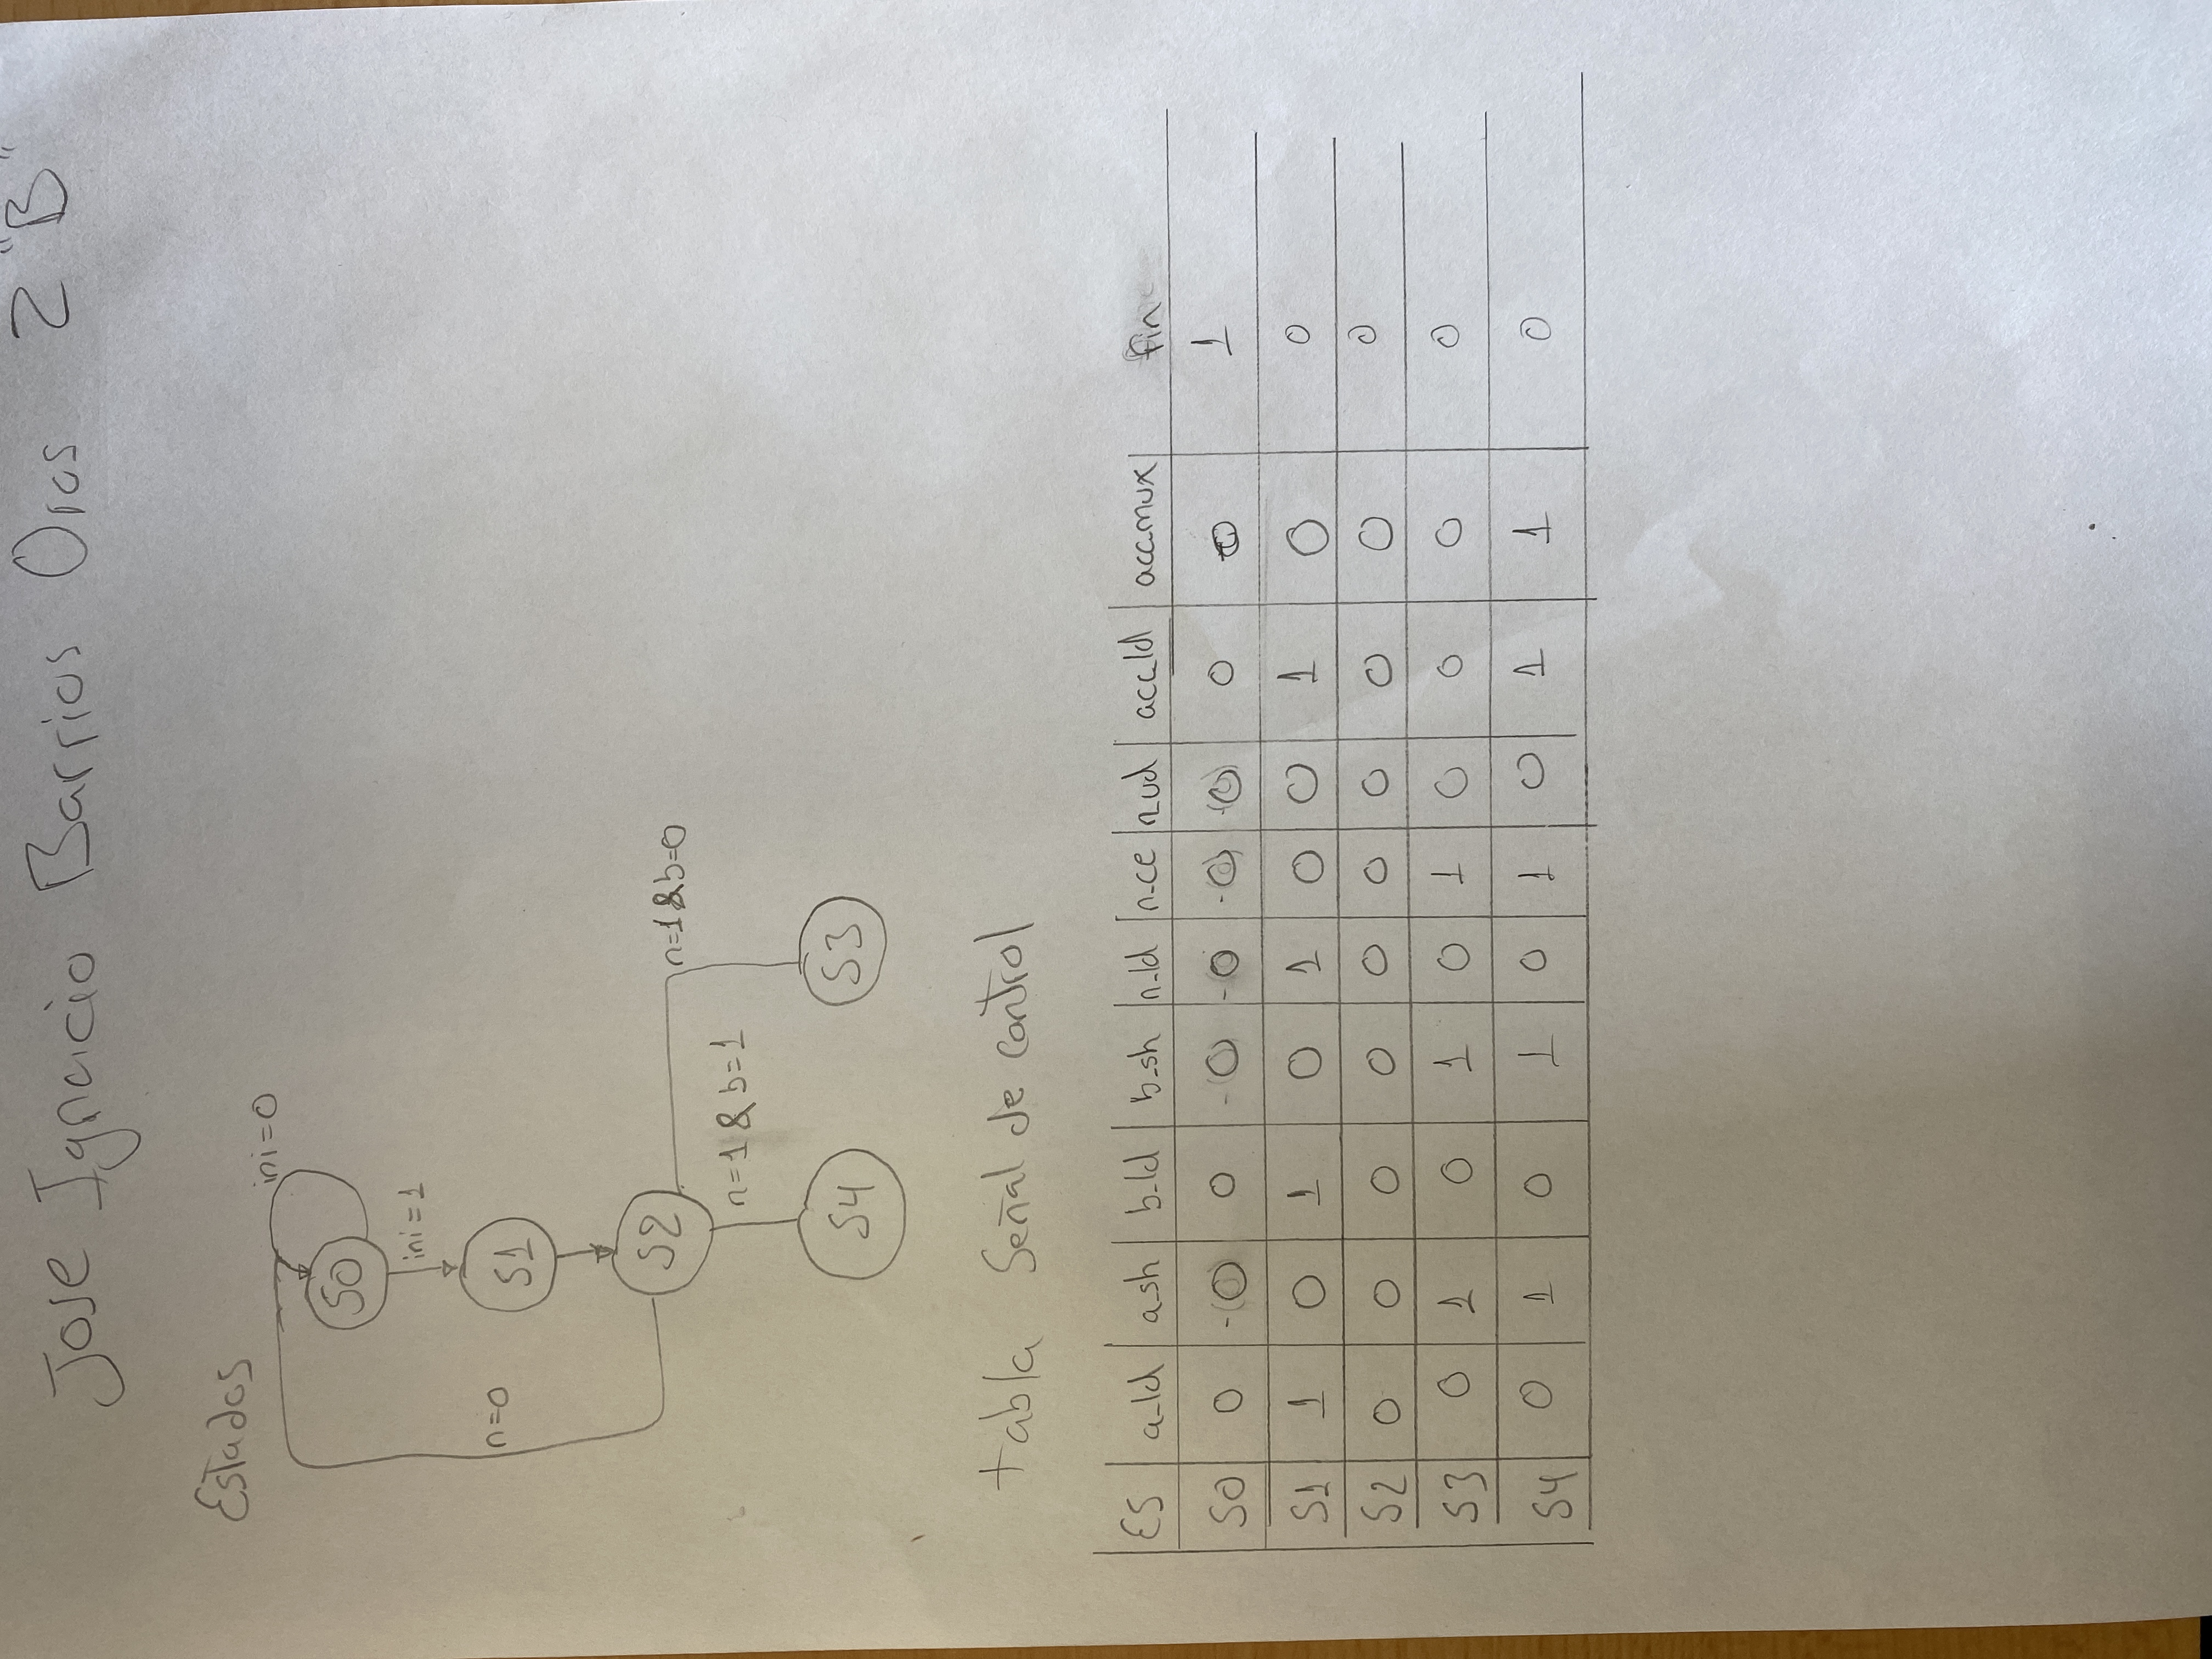 Jose Ignacio Barrios Oros 2 "B"
Estados
ini=0
S0
ini=1
n=0
S1
S2
n=1&b=0
n=1 & b=1
S4 S3
tabla Señal de control
ES a_ld a_sh b_ld b_sh n_ld n_ce n_ud acc_ld acc_mux fin
S0 0 -(0) 0 -0 -0 -0 (0) 0 0 1
S1 1 0 1 0 1 0 0 1 0 0
S2 0 0 0 0 0 0 0 0 0 0
S3 0 1 0 1 0 1 0 0 0 0
S4 0 1 0 1 0 1 0 1 1 0